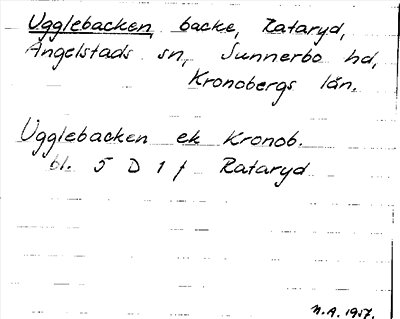 Ugglebacken, backe, Rataryd,
Angelstads sn, Sunnerbo hd,
Kronobergs län.
Ugglebacken ek Kronob.
bl. 5 D 1 f Rataryd
N.A. 1957.